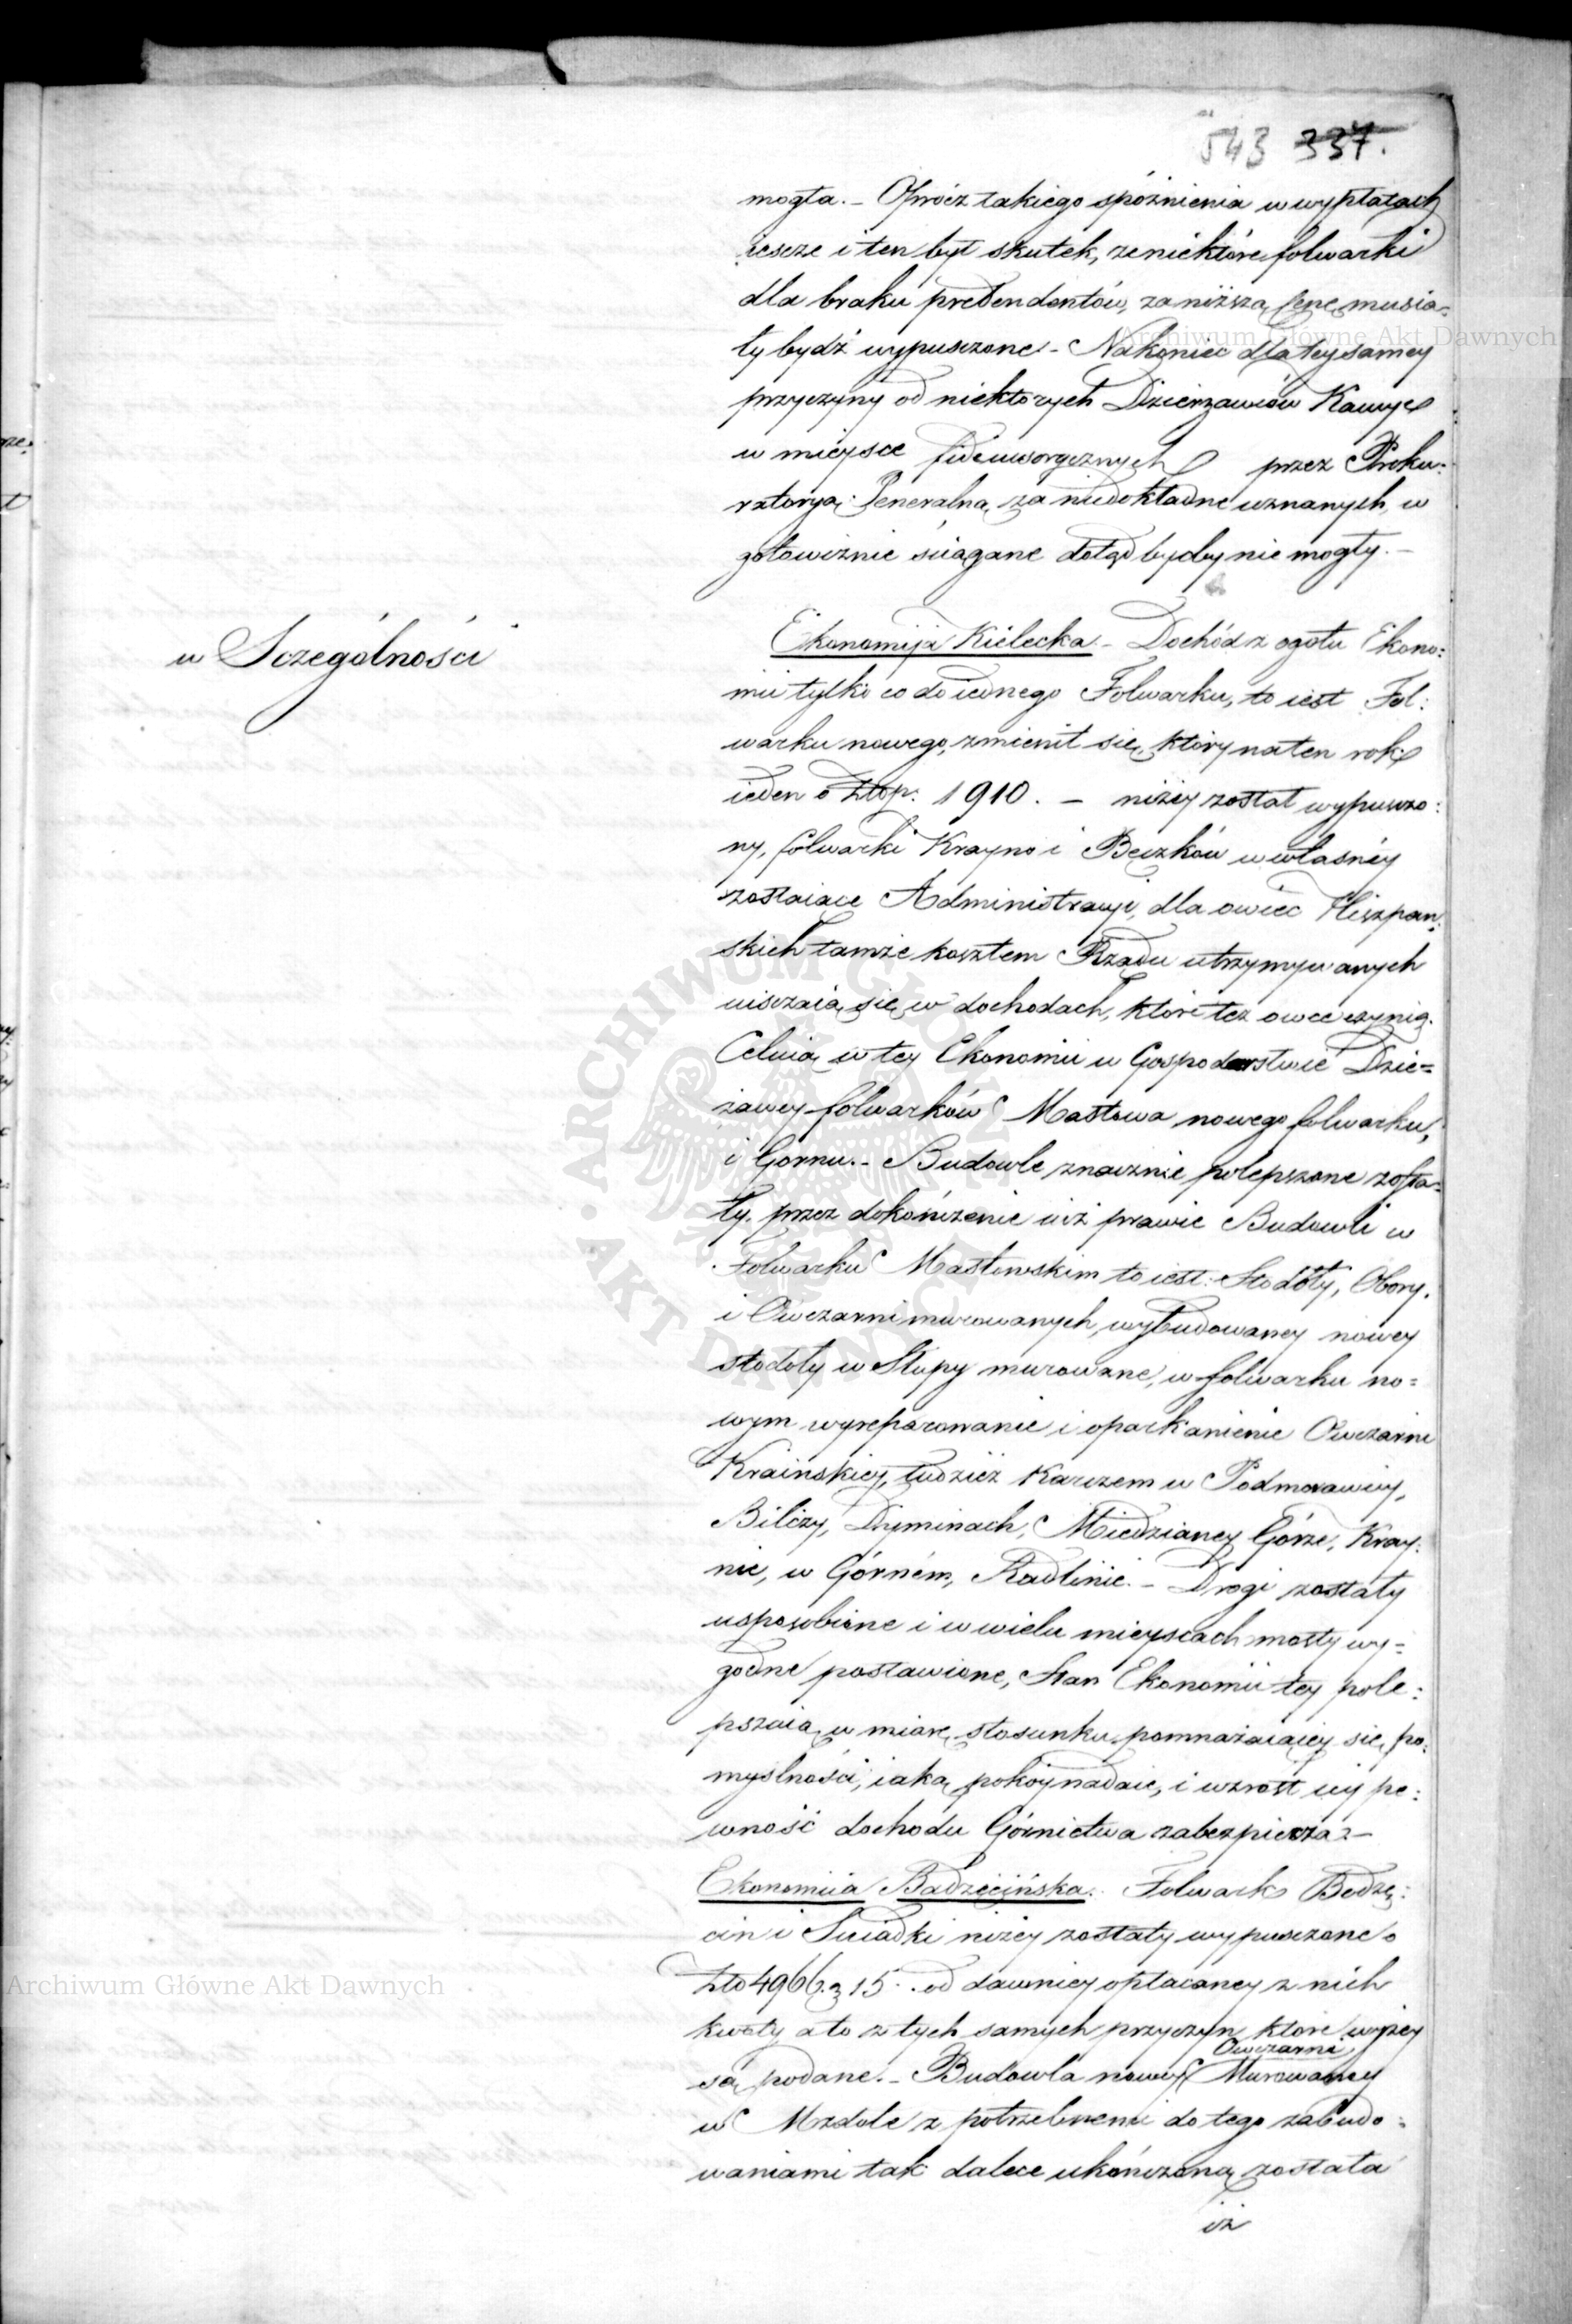 543 337.
mogła. – Oprócz takiego spóźnienia w wypłatach
iescze i ten był skutek, że niektóre folwarki
dla braku pretendentów, za niższą cenę musia=
ły bydź wypusczone. – Nakoniec dla tey samey
przyczyny od niektorych Dzierzawców Kaucye
w mieysce fideiussorycznych przez Proku:
ratoryą Jeneralną za niedokładne uznanych, w
gotowiźnie ściągane dotąd bydź nie mogły. –
w Sczególności
Ekonomija Kielecka. – Dochód z ogółu Ekono:
mii tylko co do iednego Folwarku, to iest Fol:
warku nowego, zmienił się, który na ten rok
ieden o złop: 1910. – niżey został wypusczo:
ny, folwarki Krayno i Bęczków w własney
zostaiące Administracyi, dla owiec Hiszpań:
skich tamże kosztem Rządu utrzymywanych
uisczaią się w dochodach, które też owce czynią.
Celuią w tey Ekonomii w Gospodarstwie Dzie=
żawcy folwarków Masłowa nowego folwarku,
i Górnu. – Budowle znacznie polepszone zosta=
ły. przez dokończenie iuż prawie Budowli w
Folwarku Masłowskim to iest: Stodoły, Obory.
i Owczarni murowanych, wybudowaney nowey
stodoły w Słupy murowane, w folwarku no=
wym wyreparowanie i oparkanienie Owczarni
Kraińskiey, tudzież Karczem w Podmorawicy,
Bilczy, Dyminach, Miedzianey Górze, Kray:
nie, w Górném, Radlinie. – Drogi zostały
usposobione i w wielu mieyscach mosty wy=
godne postawione, Stan Ekonomii tey pole:
pszaią w miarę stosunku pomnażaiącey się po:
myślności, iaką pokóy nadaie, i wzrost iey pe:
wność dochodu Górnictwa zabezpiecza –
Ekonomiia Bodzęcińska. Folwark Bodzę:
cin i Siciadki niżey zostały wypusczone o
Zło 4966. g 15. od dawniey opłacaney z nich
kwoty a to z tych samych przyczyn które wyżey
są podane. – Budowla nowey Owczarni Murowaney
w Mzdole z potrzebnemi do tego zabudo:
waniami tak dalece ukończoną została
iż
Archiwum Główne Akt Dawnych
Archiwum Główne Akt Dawnych
ARCHIWUM GŁÓWNE AKT DAWNYCH